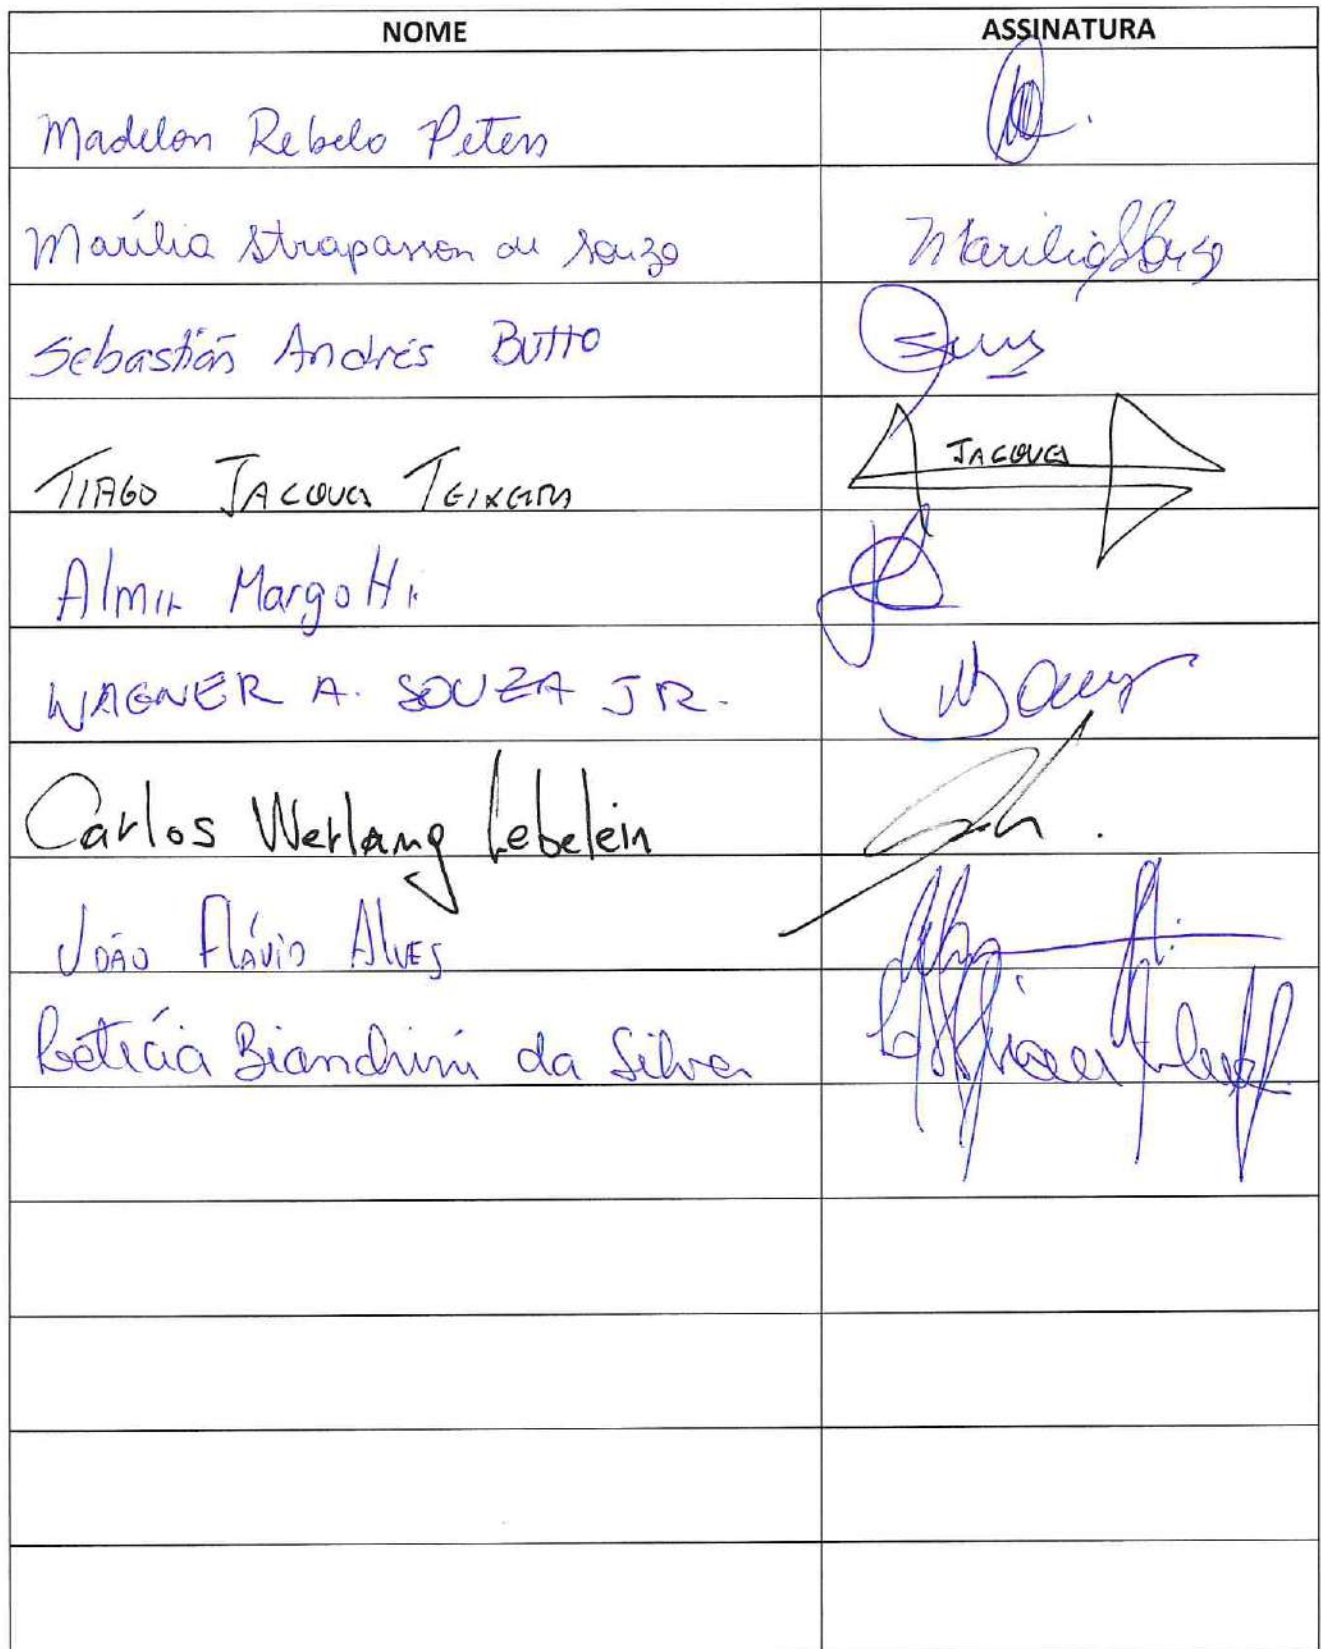 NOME ASSINATURA
Madelon Rebelo Peters
Marília Strapasson de Souza
Sebastián Andrés BUTTO
TIAGO JACQUES TEIXEIRA JACQUES
Almir Margotti
WAGNER A. SOUZA JR.
Carlos Werlang Lebelein
JOÃO FLÁVIO ALVES
Letícia Bianchini da Silva